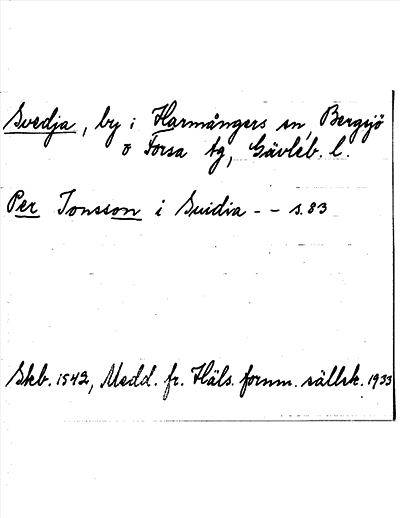 Svedja, by i Harmångers sn, Bergsjö
o Forsa tg, Gävleb. l.
Per Jonsson i Suidia - - s. 83
Skb. 1542, Medd. fr. Häls. fornm. sällsk. 1933